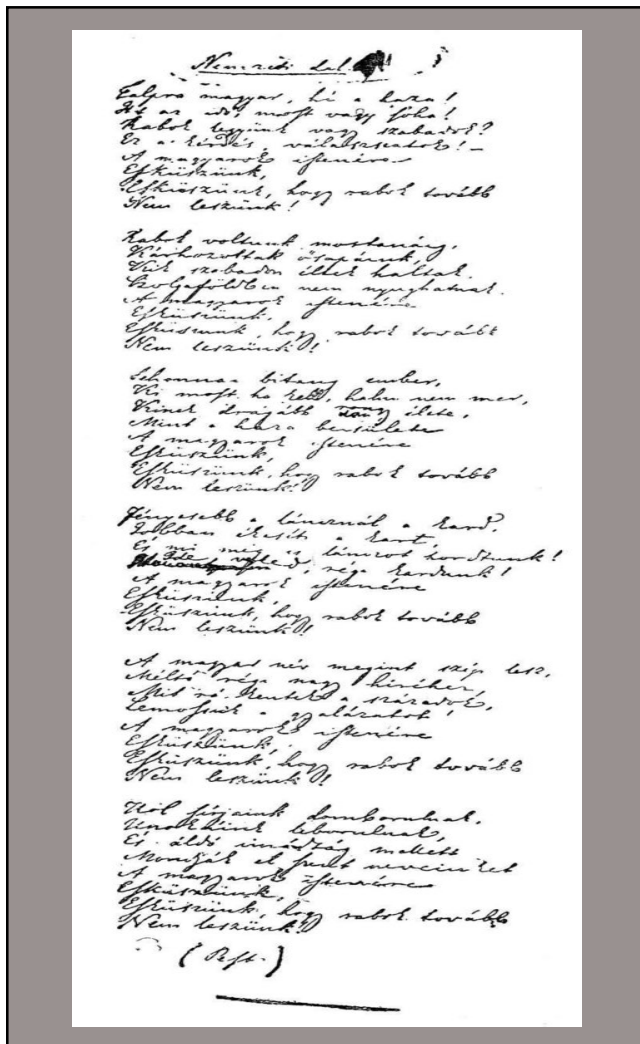 Nemzeti dal.
Talpra magyar, hí a haza!
Itt az idő, most vagy soha!
Rabok legyünk vagy szabadok?
Ez a' kérdés, válaszszatok! –
A magyarok istenére
Esküszünk,
Esküszünk, hogy rabok tovább
Nem leszünk!
Rabok voltunk mostanáig,
Kárhozottak ősapáink,
Kik szabadon éltek haltak,
Szolgaföldben nem nyughatnak.
A magyarok istenére
Esküszünk,
Esküszünk, hogy rabok tovább
Nem leszünk!
Sehonnai bitang ember,
Ki most, ha kell, halni nem mer,
Kinek drágább rongy élete,
Mint a haza becsülete
A magyarok istenére
Esküszünk,
Esküszünk, hogy rabok tovább
Nem leszünk!
Fényesebb a láncznál a kard,
Jobban ékesíti a kart,
És mi mégis lánczot hordtunk!
Ide veled, régi kardunk!
A magyarok istenére
Esküszünk,
Esküszünk, hogy rabok tovább
Nem leszünk!
A magyar név megint szép lesz,
Méltó régi nagy hiréhez,
Mit rá kentek a századok,
Lemossuk a gyalázatot!
A magyarok istenére
Esküszünk,
Esküszünk, hogy rabok tovább
Nem leszünk!
Hol sírjaink domborulnak,
Unokáink leborulnak,
És áldó imádság mellett
Mondják el szent neveinket
A magyarok istenére
Esküszünk,
Esküszünk, hogy rabok tovább
Nem leszünk!
(Pest.)